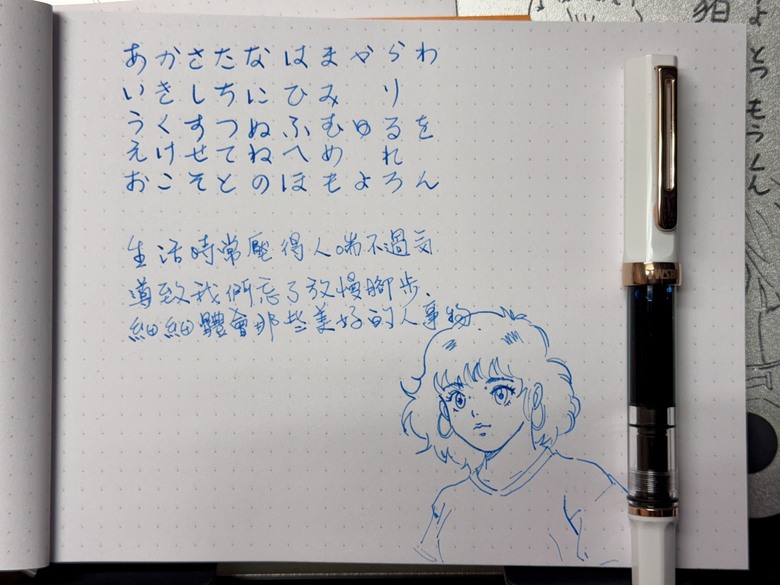 あかさたなはまやらわ
いきしちにひみ り
うくすつぬふむゆるを
えけせてねへめ れ
おこそとのほもよろん
生活時常壓得人喘不過氣
導致我們忘了放慢腳步、
細細體會那些美好的人事物
よ とつ もうくん、
TWSBI